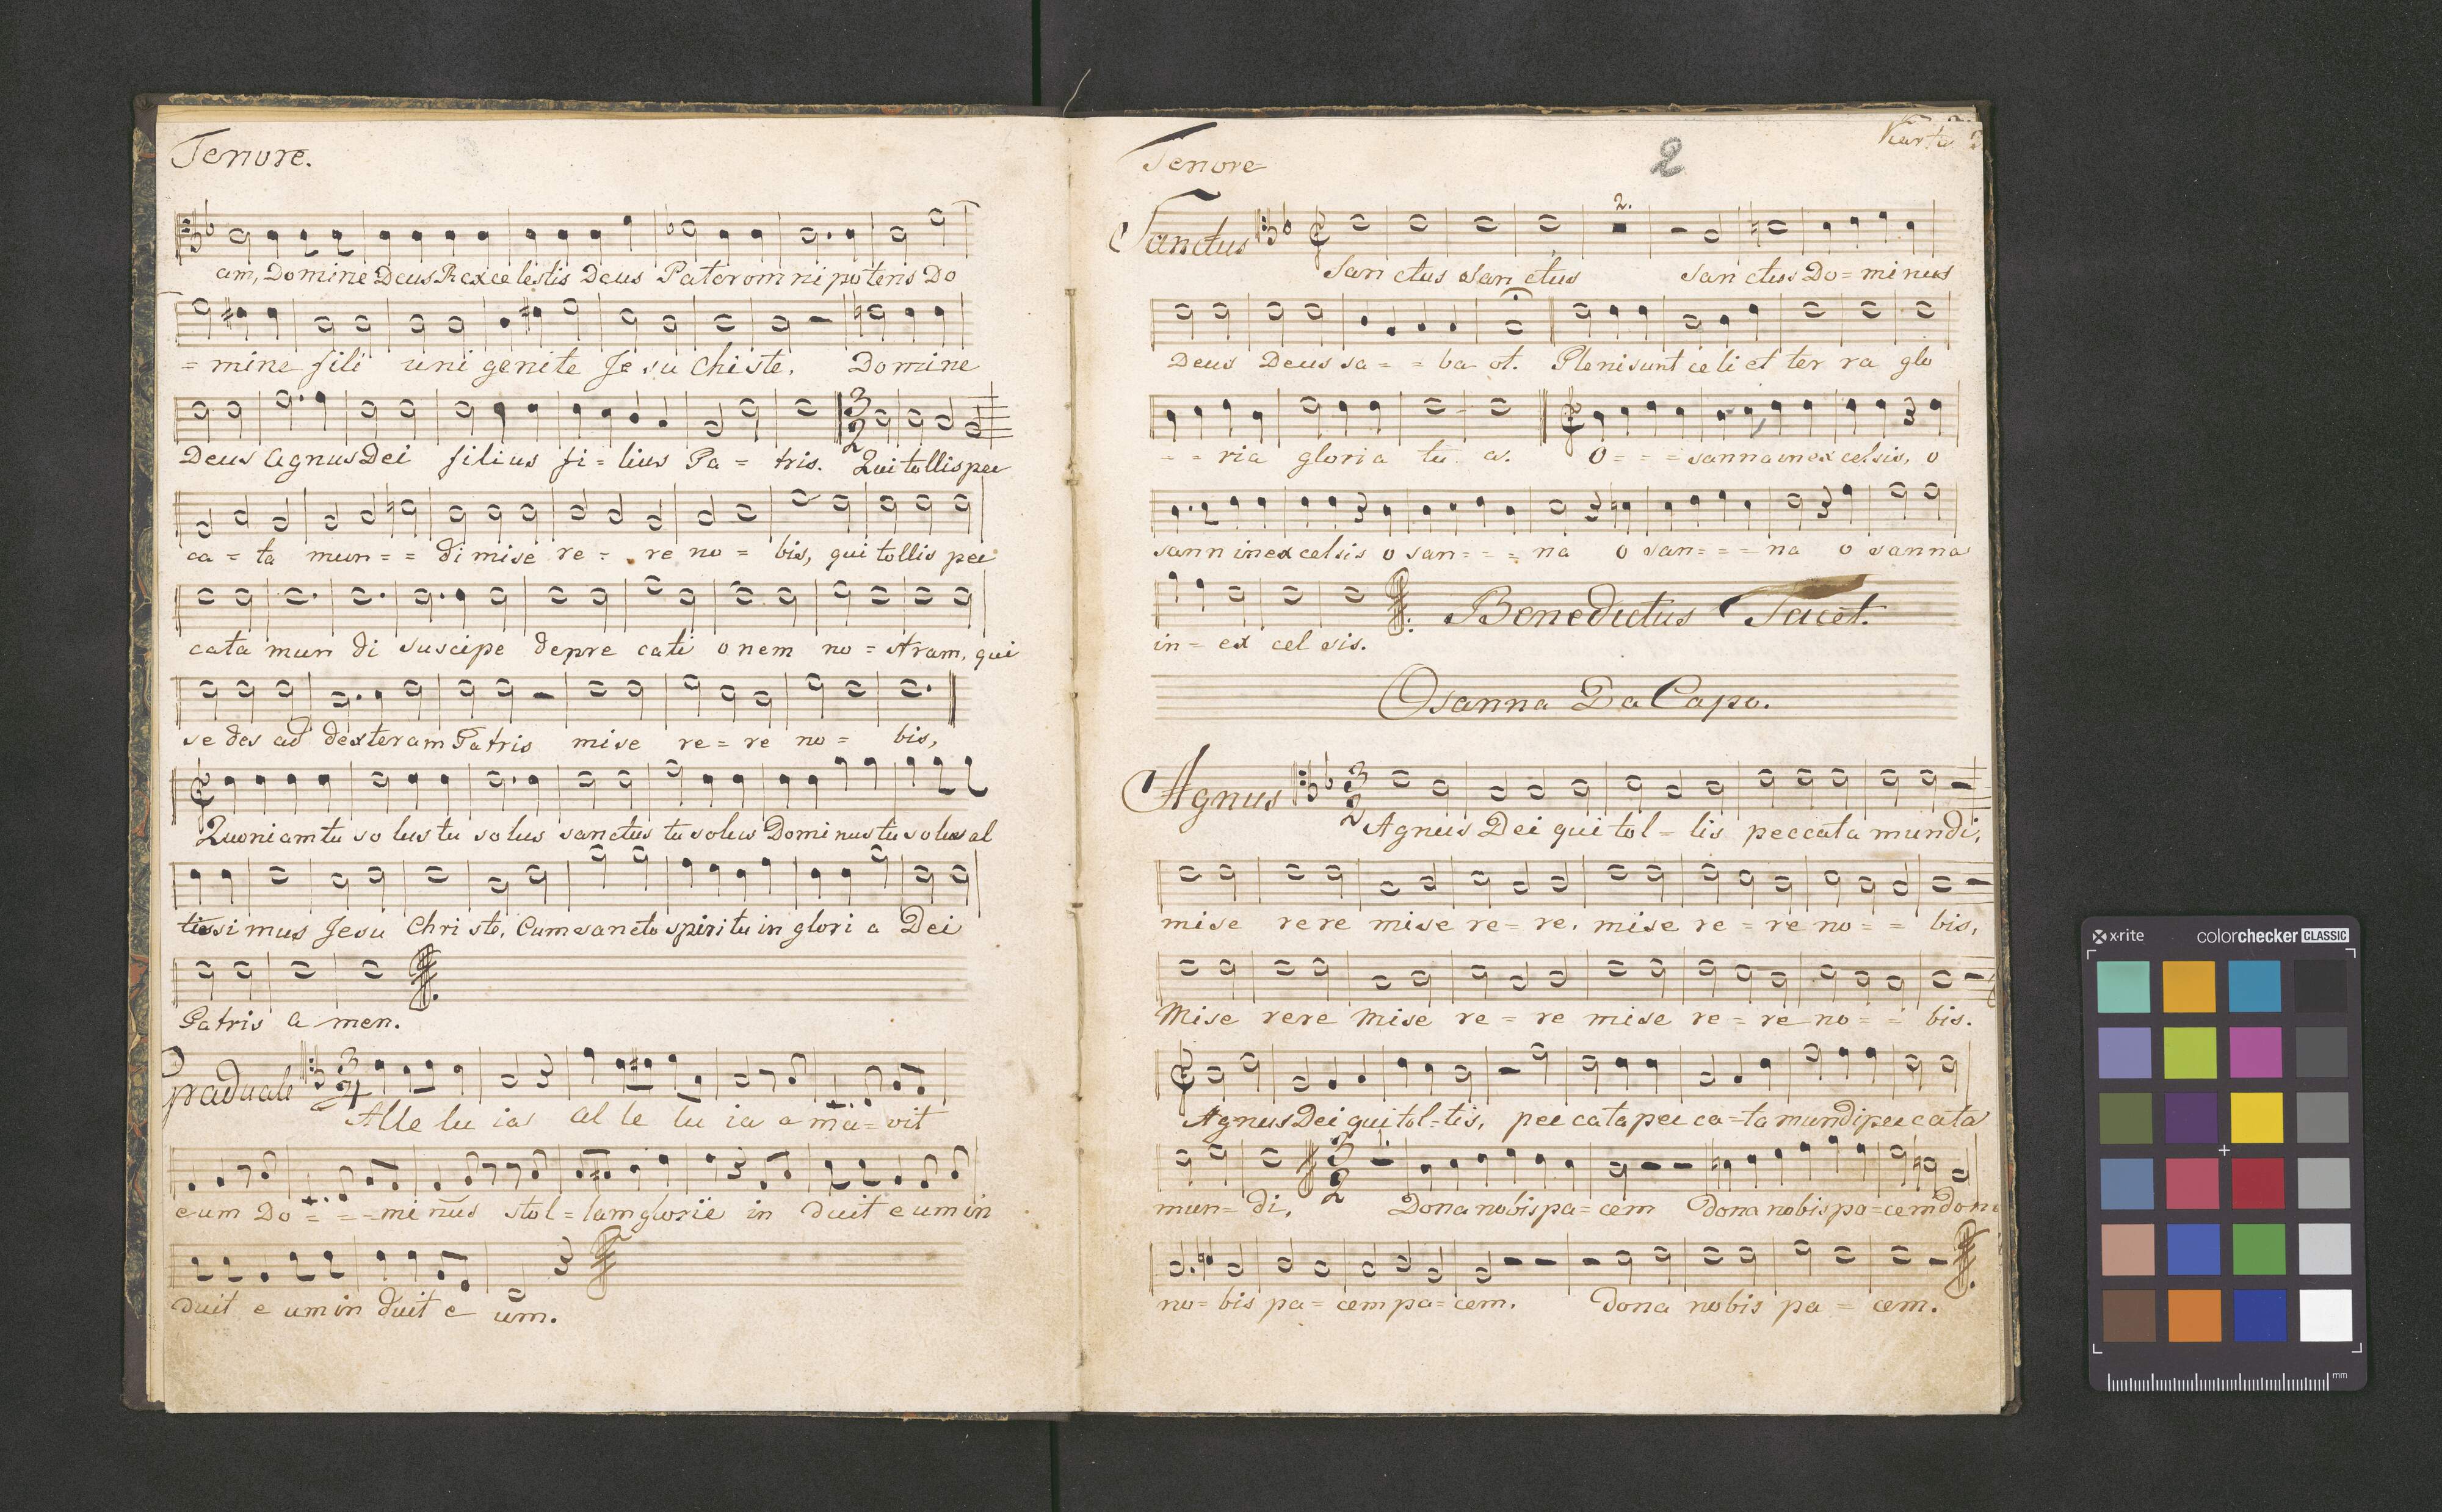 Tenore.
am, Domine Deus Rex ce lestis Deus Pater om ni po tens Do
= mine fili uni genite Je su Chiste, Domine
Deus Agnus Dei filius fi = lius Pa = tris. Qui tollis pec
ca = ta mun = = di mise re = re no = bis, qui tollis pec
cata mun di suscipe depre cati o nem no = stram, qui
se des ad dexteram Patris mise re = re no = bis,
Quoniam tu so lus tu solus sanctus tu solus Dominus tu solus al
tissi mus Jesu Chri ste, Cum sancto spiritu in glori a Dei
Patris a men.
Graduale 3 4
Alle lu ia al le lu ia a ma = vit
eum Do = = = mi nus stol = lam glorie in duit e um in
duit e um in duit e um.
Tenore
2
Karta 3
Sanctus
2.
San ctus San ctus San ctus Do = mi nus
Deus Deus sa = = ba ot. Pleni sunt celi et ter ra glo
= = ria gloria tu a. O = = = sanna in ex celsis, o
sann in ex celsis o san = = = na o san = = = na o sanna
in = ex cel sis.
Benedictus Tacet.
Osanna Da Capo.
Agnus 3 2
Agnus Dei qui tol = lis peccata mundi,
mise rere mise re = re, mise re = re no = = bis,
Mise rere Mise re = re mise re = re no = = bis.
Agnus Dei qui tol = lis, pec cata pec ca = ta mundi pec cata
mun = di, 3 2 Dona nobis pa = cem dona nobis pa = cem dona
no = bis pa = cem pa = cem. dona nobis pa = cem.
x-rite colorchecker CLASSIC
mm